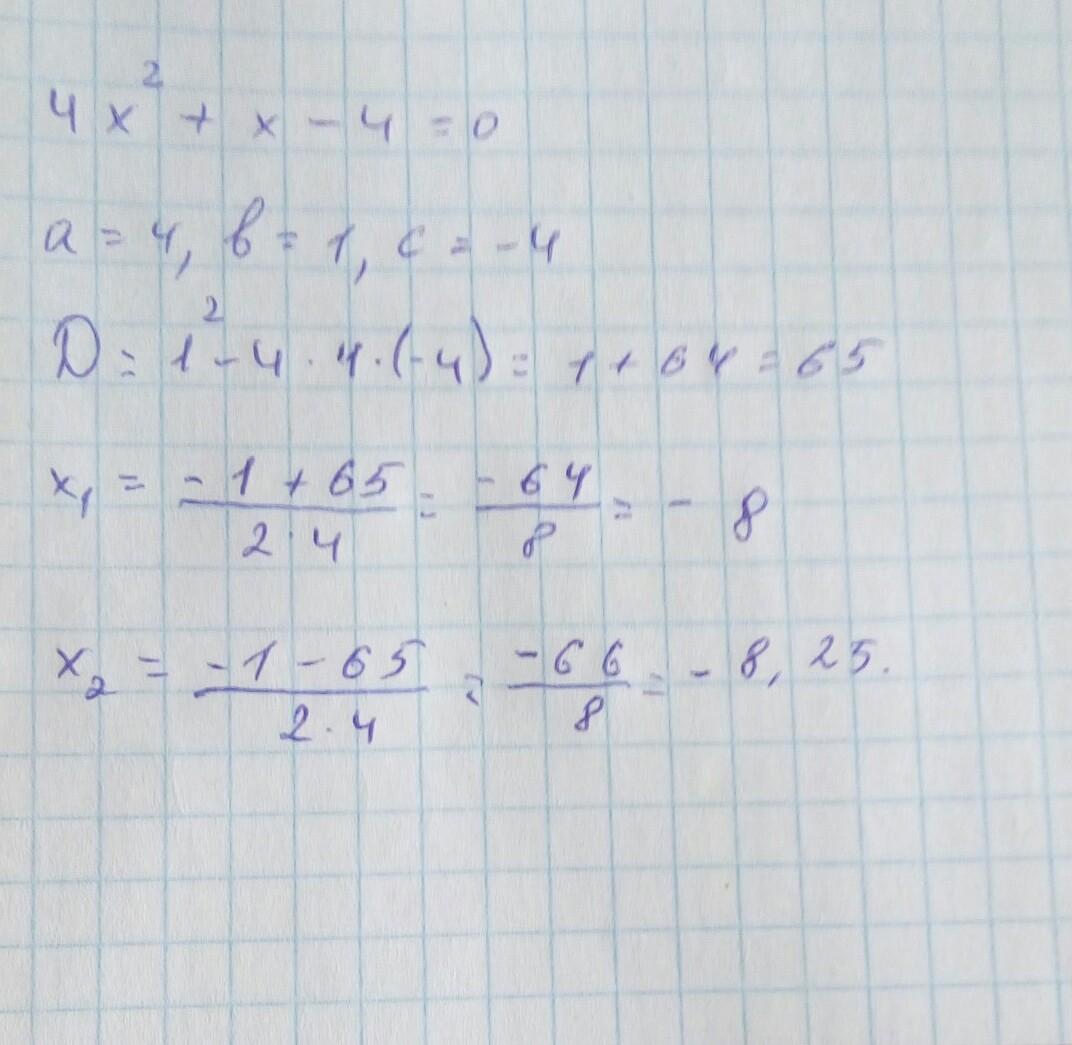 4x² + x - 4 = 0
a = 4, b = 1, c = -4
D = 1² - 4 · 4 · (-4) = 1 + 64 = 65
x₁ = (-1 + 65)/(2 · 4) = -64/8 = -8
x₂ = (-1 - 65)/(2 · 4) = -66/8 = -8,25.